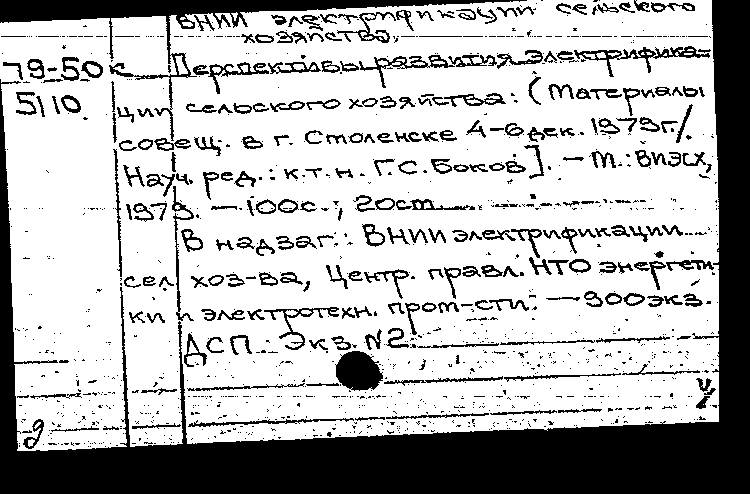 ВНИИ электрификации сельского
хозяйства.
79-50к Перспективы развития электрифика-
5110. ции сельского хозяйства: (Материалы
совещ. в г. Смоленске 4-6 дек. 1979г./
Науч. ред.: к.т.н. Г.С. Боков]. — М.: ВИЭСХ,
1979. — 100с.; 20см
В надзаг.: ВНИИ электрификации
сел хоз-ва, Центр. правл. НТО энергети-
ки и электротехн. пром-сти. — 900экз.
ДСП. Экз. N2